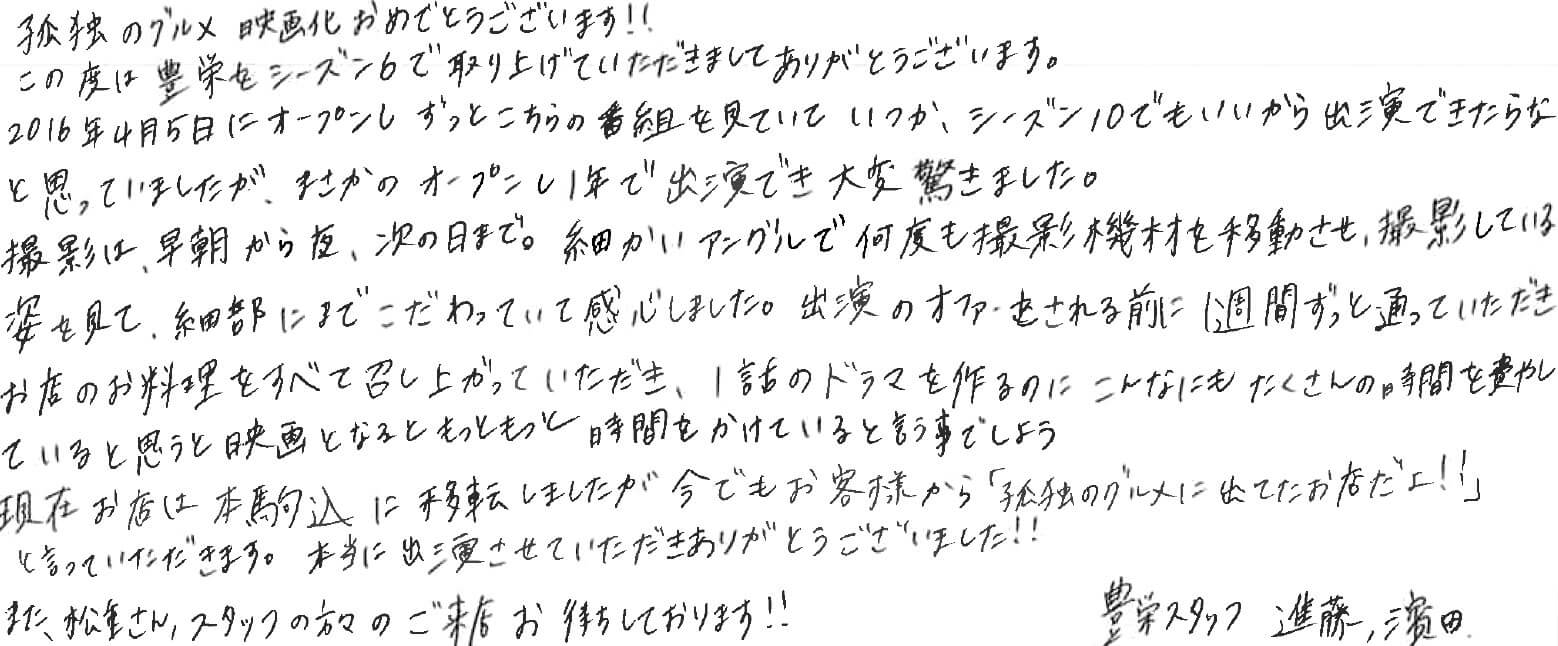 孤独のグルメ 映画化おめでとうございます!!
この度は豊栄をシーズン6で取り上げていただきましてありがとうございます。
2016年4月5日にオープンし ずっとこちらの番組を見ていて いつか、シーズン10でもいいから出演できたらな
と思っていましたが、まさかの オープンし1年で出演でき大変驚きました。
撮影は、早朝から夜、次の日まで。細かいアングルで何度も撮影機材を移動させ、撮影している
姿を見て、細部にまでこだわっていて感心しました。出演のオファーをされる前に1週間ずっと通っていただき
お店のお料理をすべて召し上がっていただき、1話のドラマを作るのにこんなにもたくさんの時間を費やし
ていると思うと映画となるともっともっと時間をかけていると言う事でしょう
現在お店は本駒込に移転しましたが今でもお客様から「孤独のグルメに出てたお店だよ!!」
と言っていただきます。本当に出演させていただきありがとうございました!!
また、松重さん、スタッフの方々のご来店お待ちしております!!
豊栄スタッフ 進藤、濱田